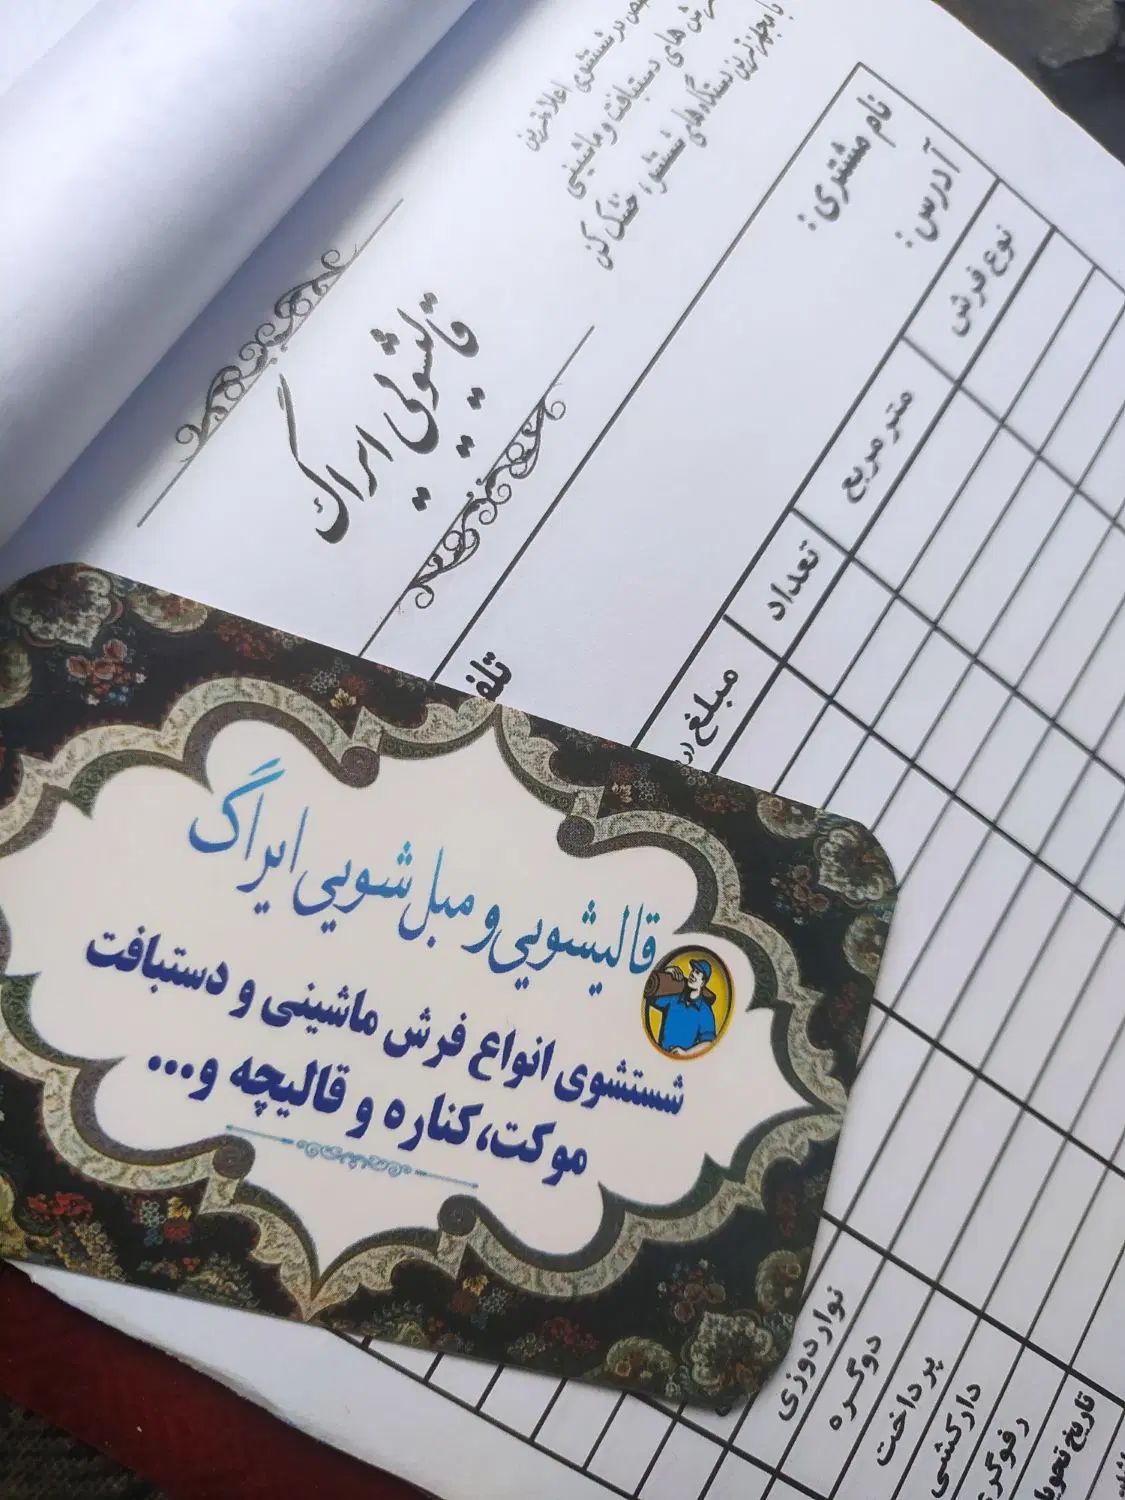 در شستشوی اعلاترین
فرش های دستبافت و ماشینی
با مجهزترین دستگاه‌های شستشو، خشک کن
قالیشویی ایراگ
نام مشتری :
آدرس :
نوع فرش
متر مربع
تعداد
مبلغ
نوار دوزی
دوگره
پرداخت
دارکشی
قالیشویی و مبل شویی ایراگ
شستشوی انواع فرش ماشینی و دستبافت
موکت، کناره و قالیچه و...